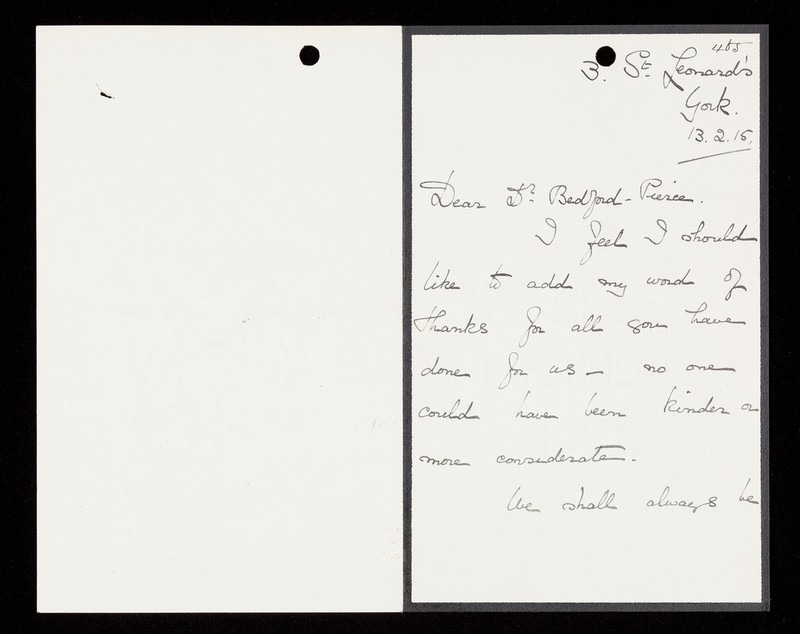 465
3. St. Leonard's
York.
13.2.15.
Dear Dr. Bedford-Pierce.
I feel I should
like to add my word of
thanks for all you have
done for us — no one
could have been kinder or
more considerate.
We shall always be